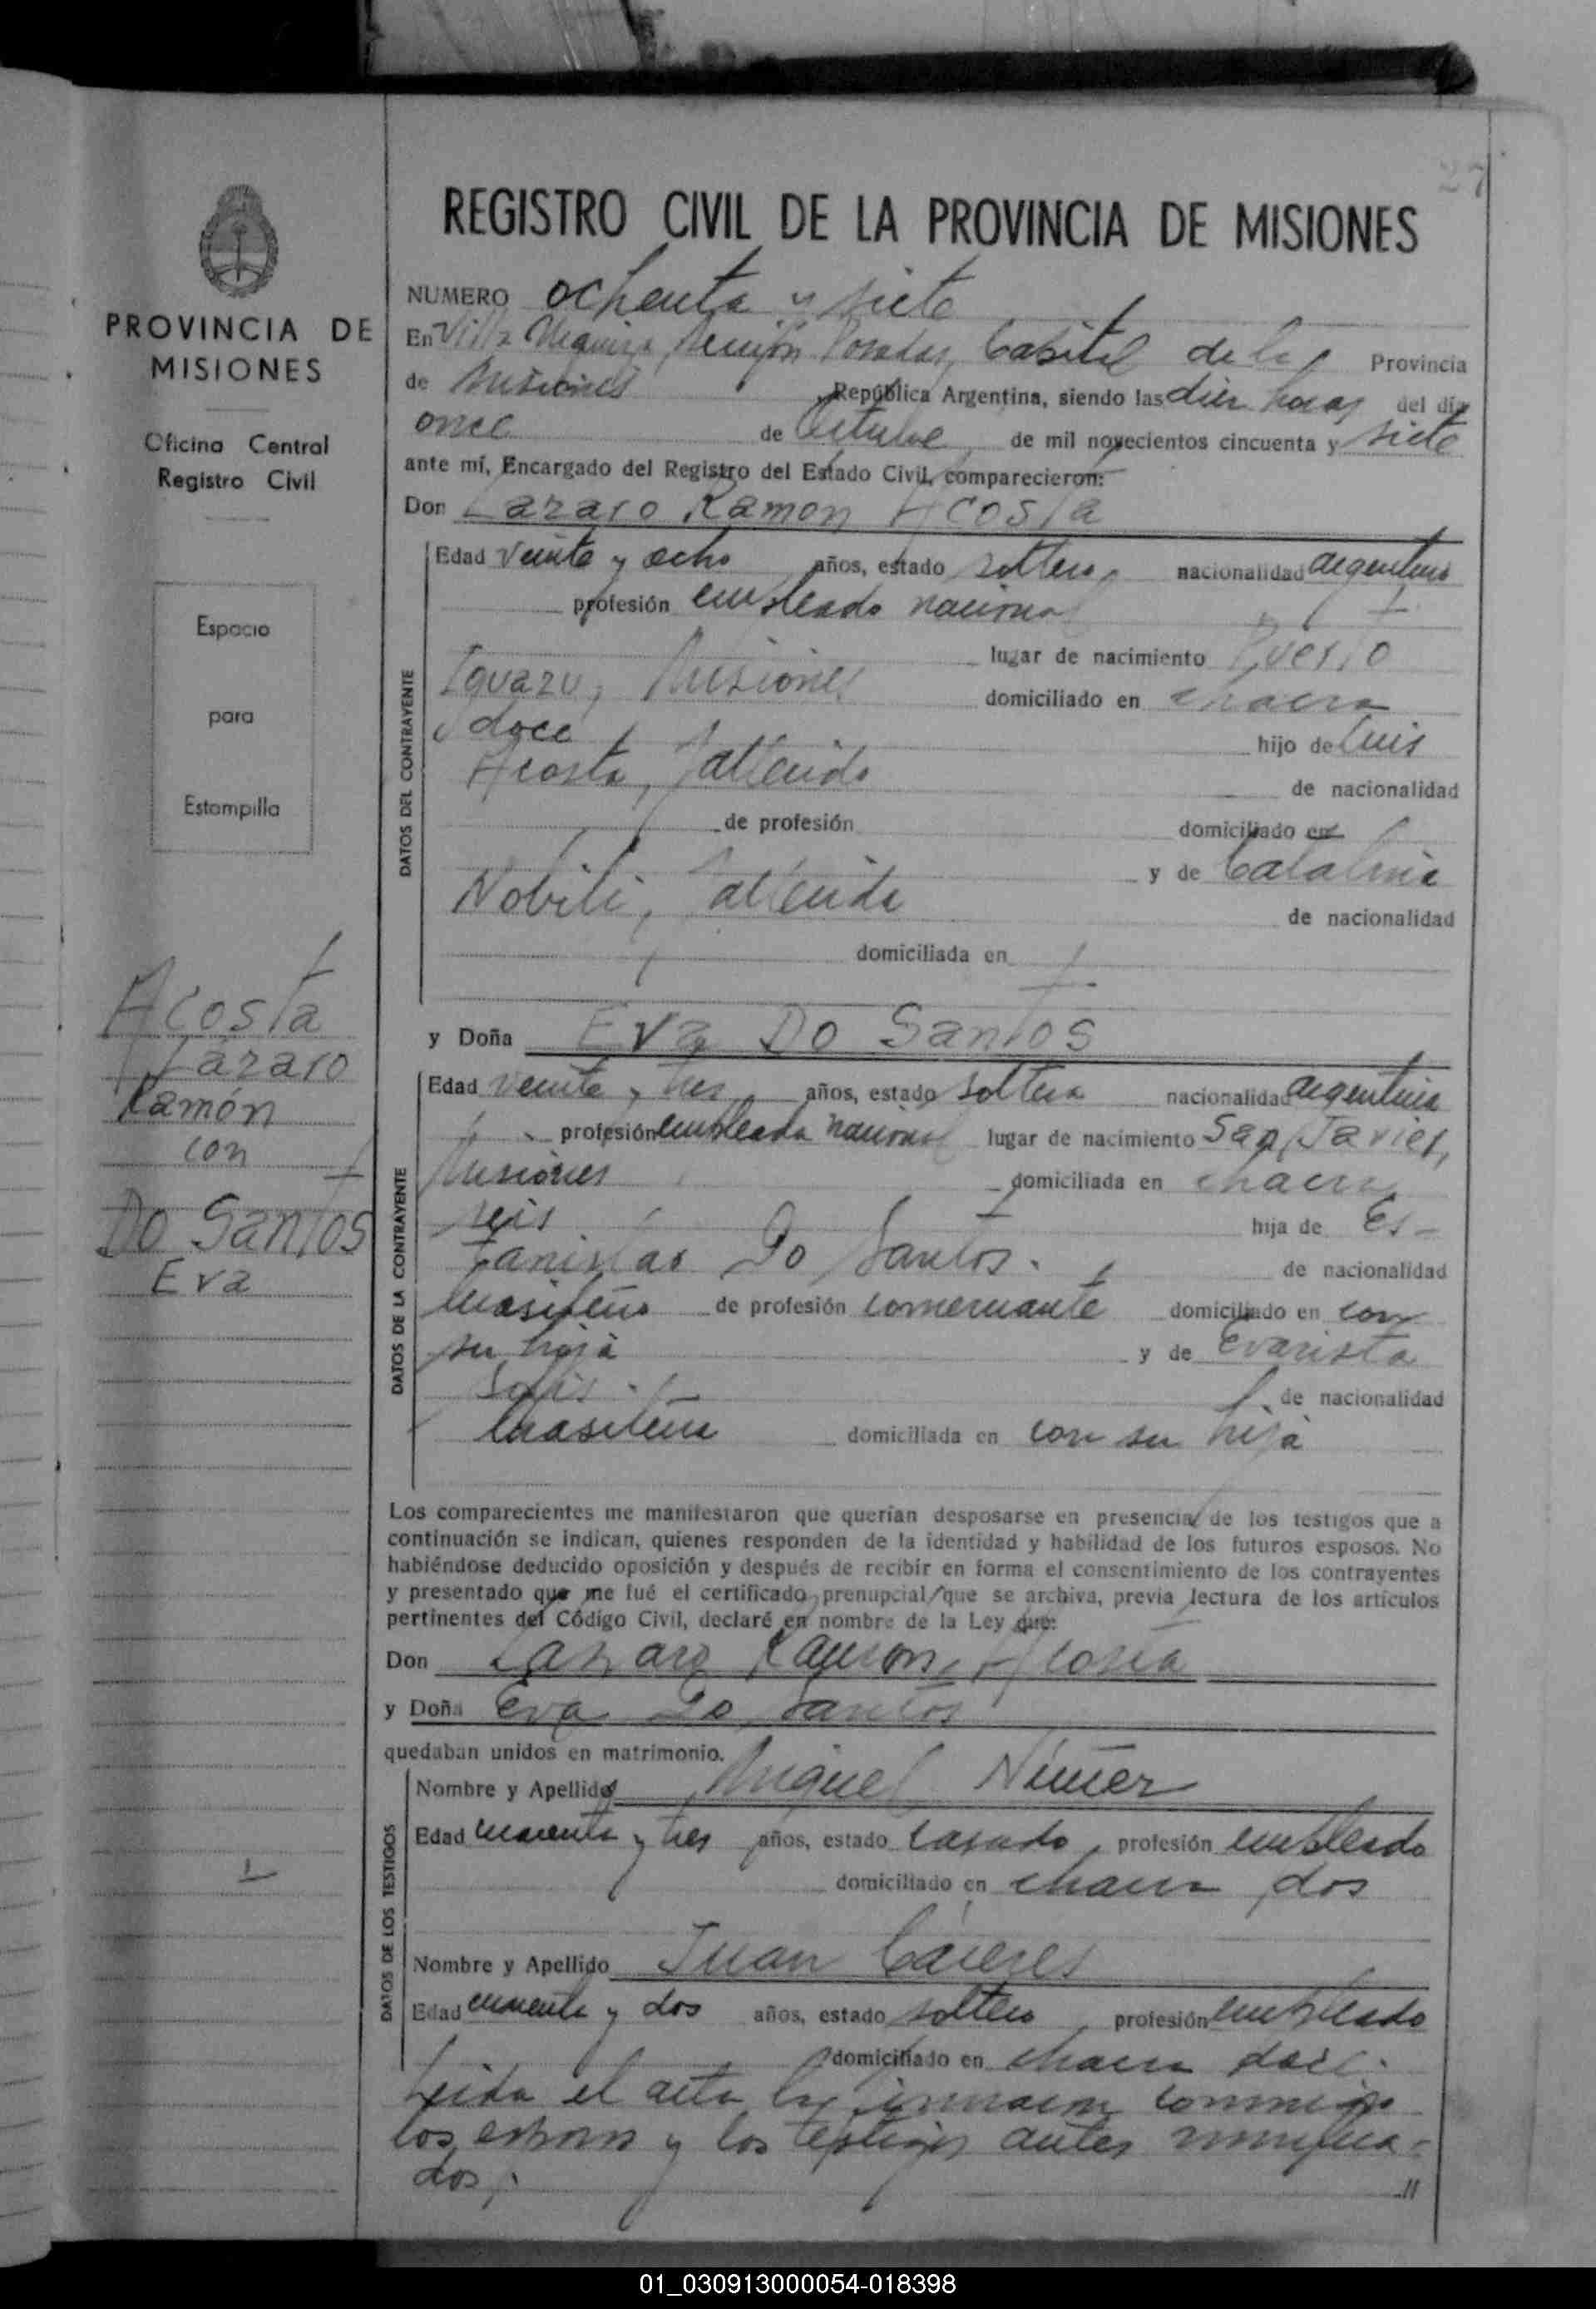 27
REGISTRO CIVIL DE LA PROVINCIA DE MISIONES
PROVINCIA DE
MISIONES
Oficina Central
Registro Civil
Espacio
para
Estampilla
Acosta
Lázaro
Ramón
con
Do Santos
Eva
NUMERO ochenta y siete
En Villa Urquiza, Posadas, Capital de la Provincia
de Misiones República Argentina, siendo las diez horas del día
once de Octubre de mil novecientos cincuenta y siete
ante mí, Encargado del Registro del Estado Civil, comparecieron:
Don Lazaro Ramon Acosta
DATOS DEL CONTRAYENTE
Edad veinte y ocho años, estado soltero, nacionalidad argentino
profesión empleado nacional
lugar de nacimiento Puerto
Iguazú, Misiones domiciliado en chacra
doce hijo de Luis
Acosta, fallecido de nacionalidad
de profesión domiciliado en
y de Catalina
Nobili, fallecida de nacionalidad
domiciliada en
y Doña Eva Do Santos
DATOS DE LA CONTRAYENTE
Edad veinte y tres años, estado soltera nacionalidad argentina
profesión empleada nacional lugar de nacimiento San Javier,
Misiones domiciliada en chacra
seis hija de Es-
tanislao Do Santos. de nacionalidad
brasileño de profesión comerciante domiciliado en con
su hija y de Evarista
Solis. de nacionalidad
brasileña domiciliada en con su hija
Los comparecientes me manifestaron que querían desposarse en presencia de los testigos que a
continuación se indican, quienes responden de la identidad y habilidad de los futuros esposos. No
habiéndose deducido oposición y después de recibir en forma el consentimiento de los contrayentes
y presentado que me fué el certificado prenupcial que se archiva, previa lectura de los artículos
pertinentes del Código Civil, declaré en nombre de la Ley que:
Don Lazaro Ramon Acosta
y Doña Eva Do Santos
quedaban unidos en matrimonio.
DATOS DE LOS TESTIGOS
Nombre y Apellido Miguel Nimer
Edad cuarenta y tres años, estado casado, profesión empleado
domiciliado en chacra dos
Nombre y Apellido Juan Cáceres
Edad cuarenta y dos años, estado soltero, profesión empleado
domiciliado en chacra doce.
Leída el acta la firmaron conmigo
los esposos y los testigos antes nombra-
dos.
//
01_030913000054-018398